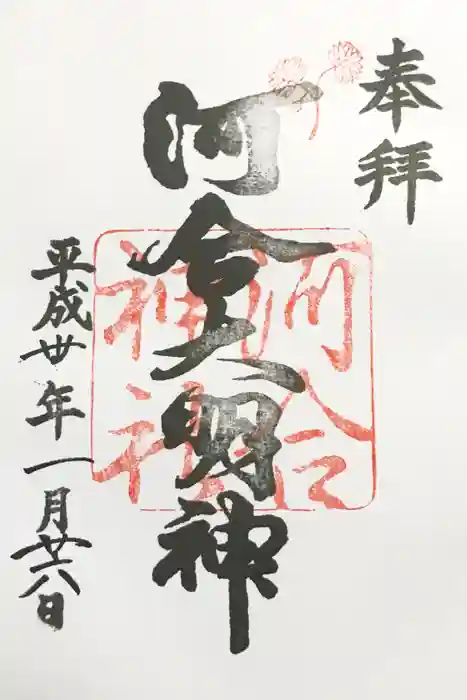 奉拝
河合大明神
平成廿年一月廿八日
河合
神社